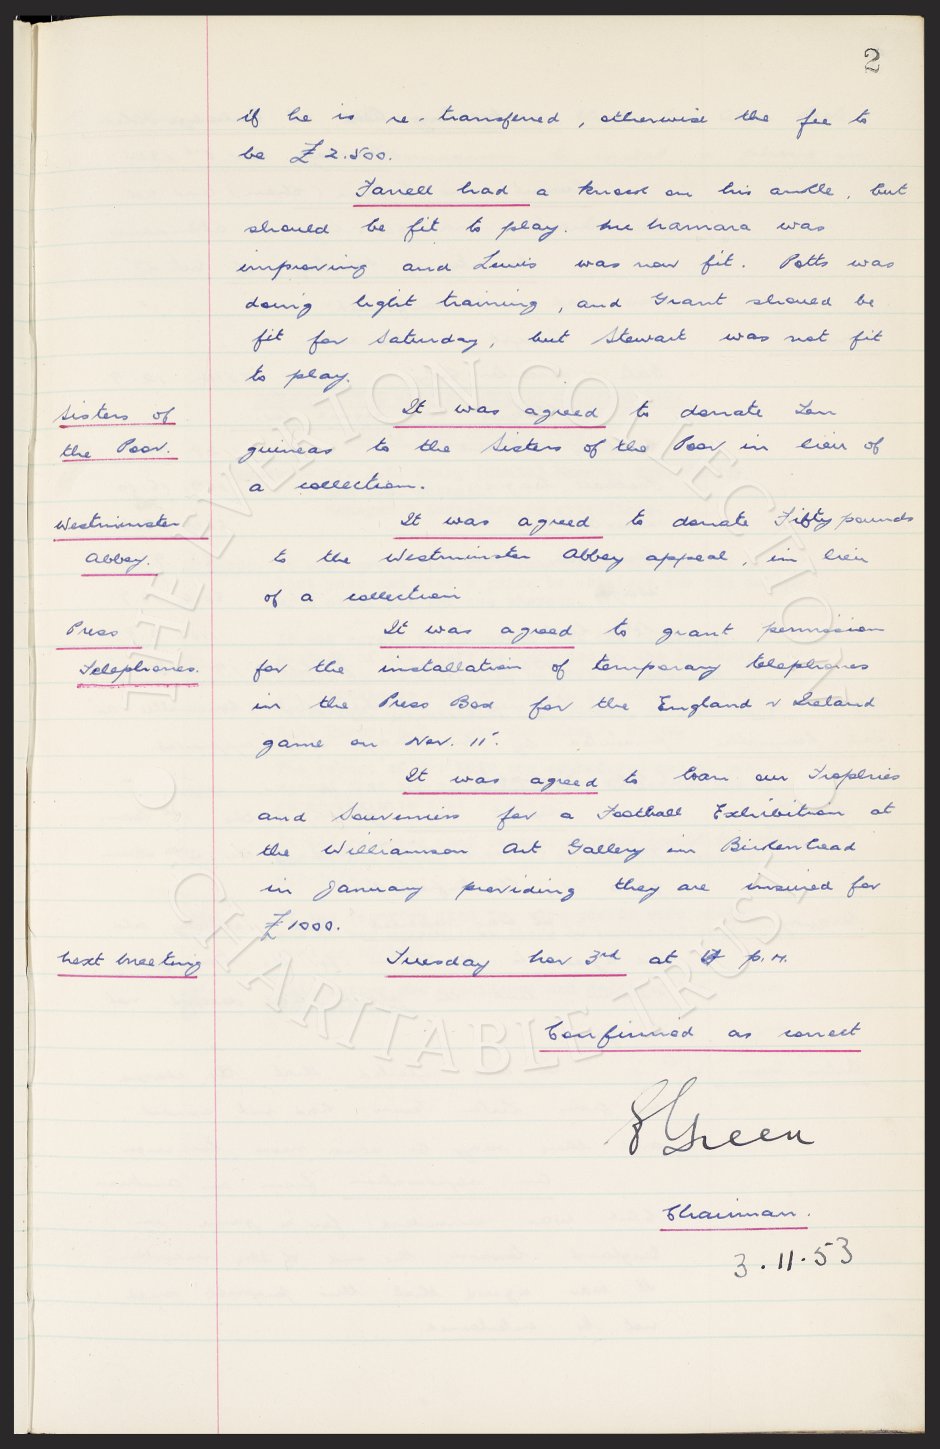 2
if he is re-transferred, otherwise the fee to
be £2.500.
Farrell had a knock on his ankle, but
should be fit to play. McNamara was
improving and Lewis was now fit. Potts was
doing light training, and Grant should be
fit for Saturday, but Stewart was not fit
to play.
Sisters of
the Poor.
It was agreed to donate Ten
guineas to the Sisters of the Poor in lieu of
a collection.
Westminster
Abbey.
It was agreed to donate Fifty pounds
to the Westminster Abbey appeal, in lieu
of a collection
Press
Telephones.
It was agreed to grant permission
for the installation of temporary telephones
in the Press Box for the England v Ireland
game on Nov. 11".
It was agreed to loan our Trophies
and Souvenirs for a Football Exhibition at
the Williamson Art Gallery in Birkenhead
in January providing they are insured for
£1000.
Next Meeting
Tuesday Nov 3rd at p.m.
Confirmed as correct
Green
Chairman.
3.11.53
THE EVERTON COLLECTION
CHARITABLE TRUST